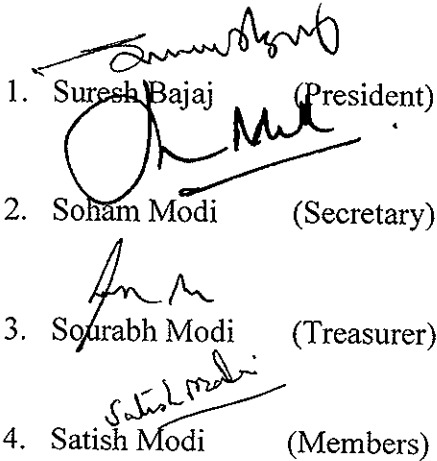 1. Suresh Bajaj (President)
2. Soham Modi (Secretary)
3. Sourabh Modi (Treasurer)
Satish Modi
4. Satish Modi (Members)